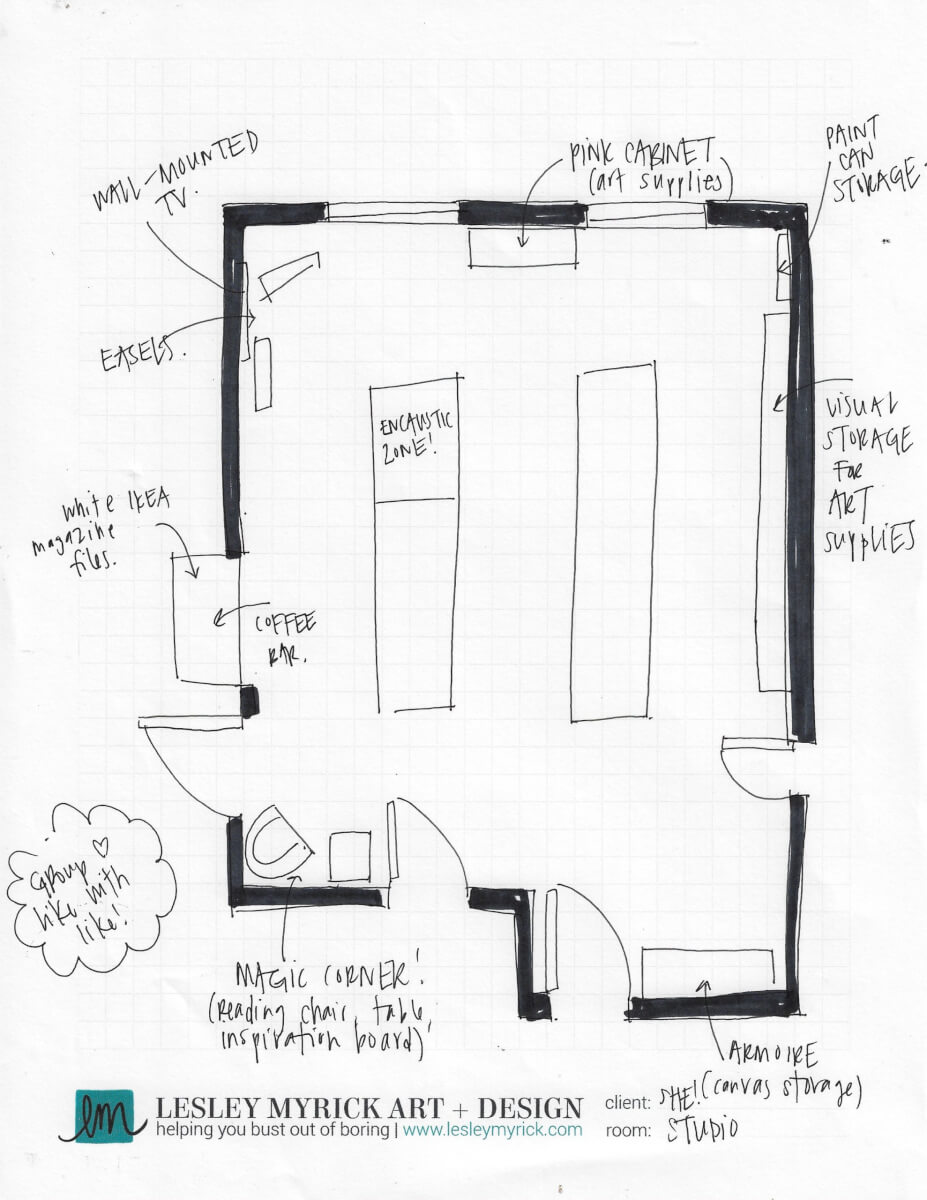 WALL-MOUNTED
TV.
PINK CABINET
(art supplies)
PAINT
CAN
STORAGE.
EASELS.
ENCAUSTIC
ZONE!
VISUAL
STORAGE
FOR
ART
SUPPLIES
white IKEA
magazine
files.
COFFEE
BAR.
GROUP
like with
like!
MAGIC CORNER!
(reading chair, table,
inspiration board)
ARMOIRE
(canvas storage)
lm
LESLEY MYRICK ART + DESIGN
helping you bust out of boring | www.lesleymyrick.com
client: SHE!
room: STUDIO